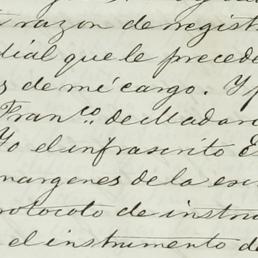 razon de registr
dial que le precede
s de mi cargo. Y p
Franco. de Madari
Yo el infrascrito E
margenes de la esc
rotocolo de instru
el instrumento d